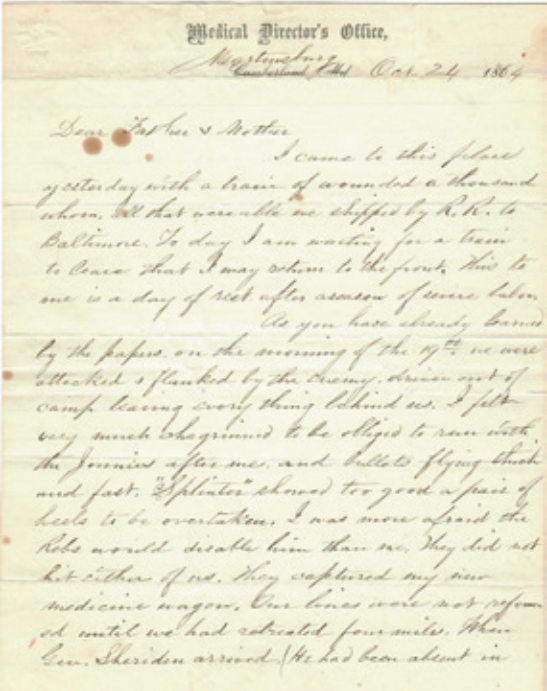 Medical Director's Office,
Martinsburg
Cumberland, Md Oct. 24 1864
Dear Father & Mother
I came to this place
yesterday with a train of wounded a thousand
whom, all that were able we shipped by R. R. to
Baltimore. To day I am waiting for a train
to leave that I may return to the front. This to
me is a day of rest after a season of severe labor
As you have already learned
by the papers, on the morning of the 19th we were
attacked & flanked by the enemy, driven out of
camp leaving every thing behind us. I felt
very much chagrined to be obliged to run with
the Jonnies after me, and bullets flying thick
and fast. "Splinter" showed too good a pair of
heels to be overtaken. I was more afraid the
Rebs would disable him than me. They did not
hit either of us. They captured my new
medicine wagon. Our lines were not reform
ed until we had retreated four miles. When
Gen. Sheriden arrived (He had been absent in